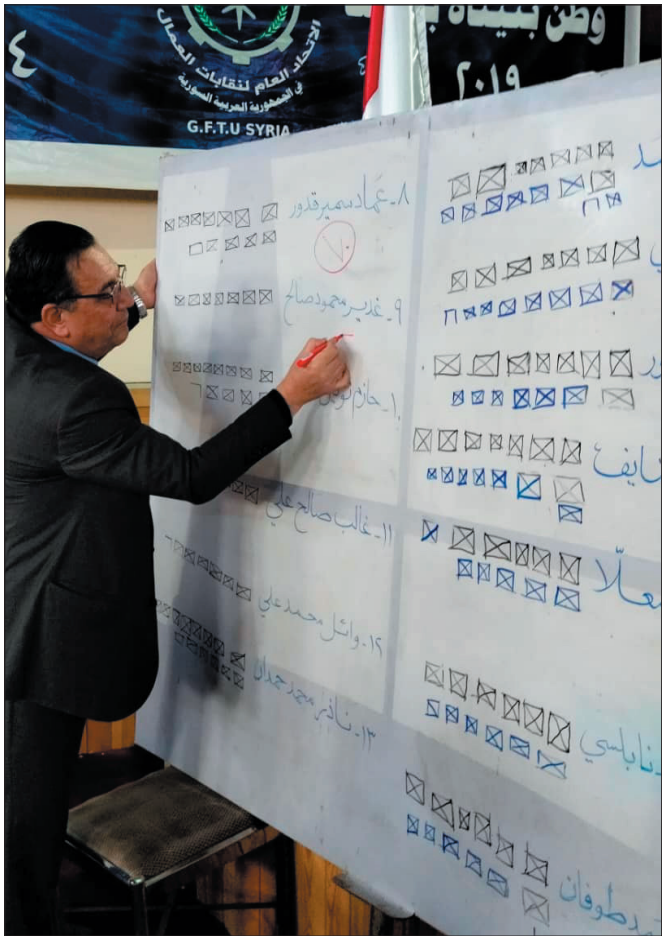 وطن بنيناه
٢٠١٩
٤
الاتحاد العام لنقابات العمال
في الجمهورية العربية السورية
G.F.T.U SYRIA
٨- عماد سمير قدور
٧٠
٩- غدير محمود صالح
١٠- حازم
١١- غالب صالح علي
١٢- وائل محمد علي
١٣- نادر محمد حمدان
معلّا
نابلسي
طوفان